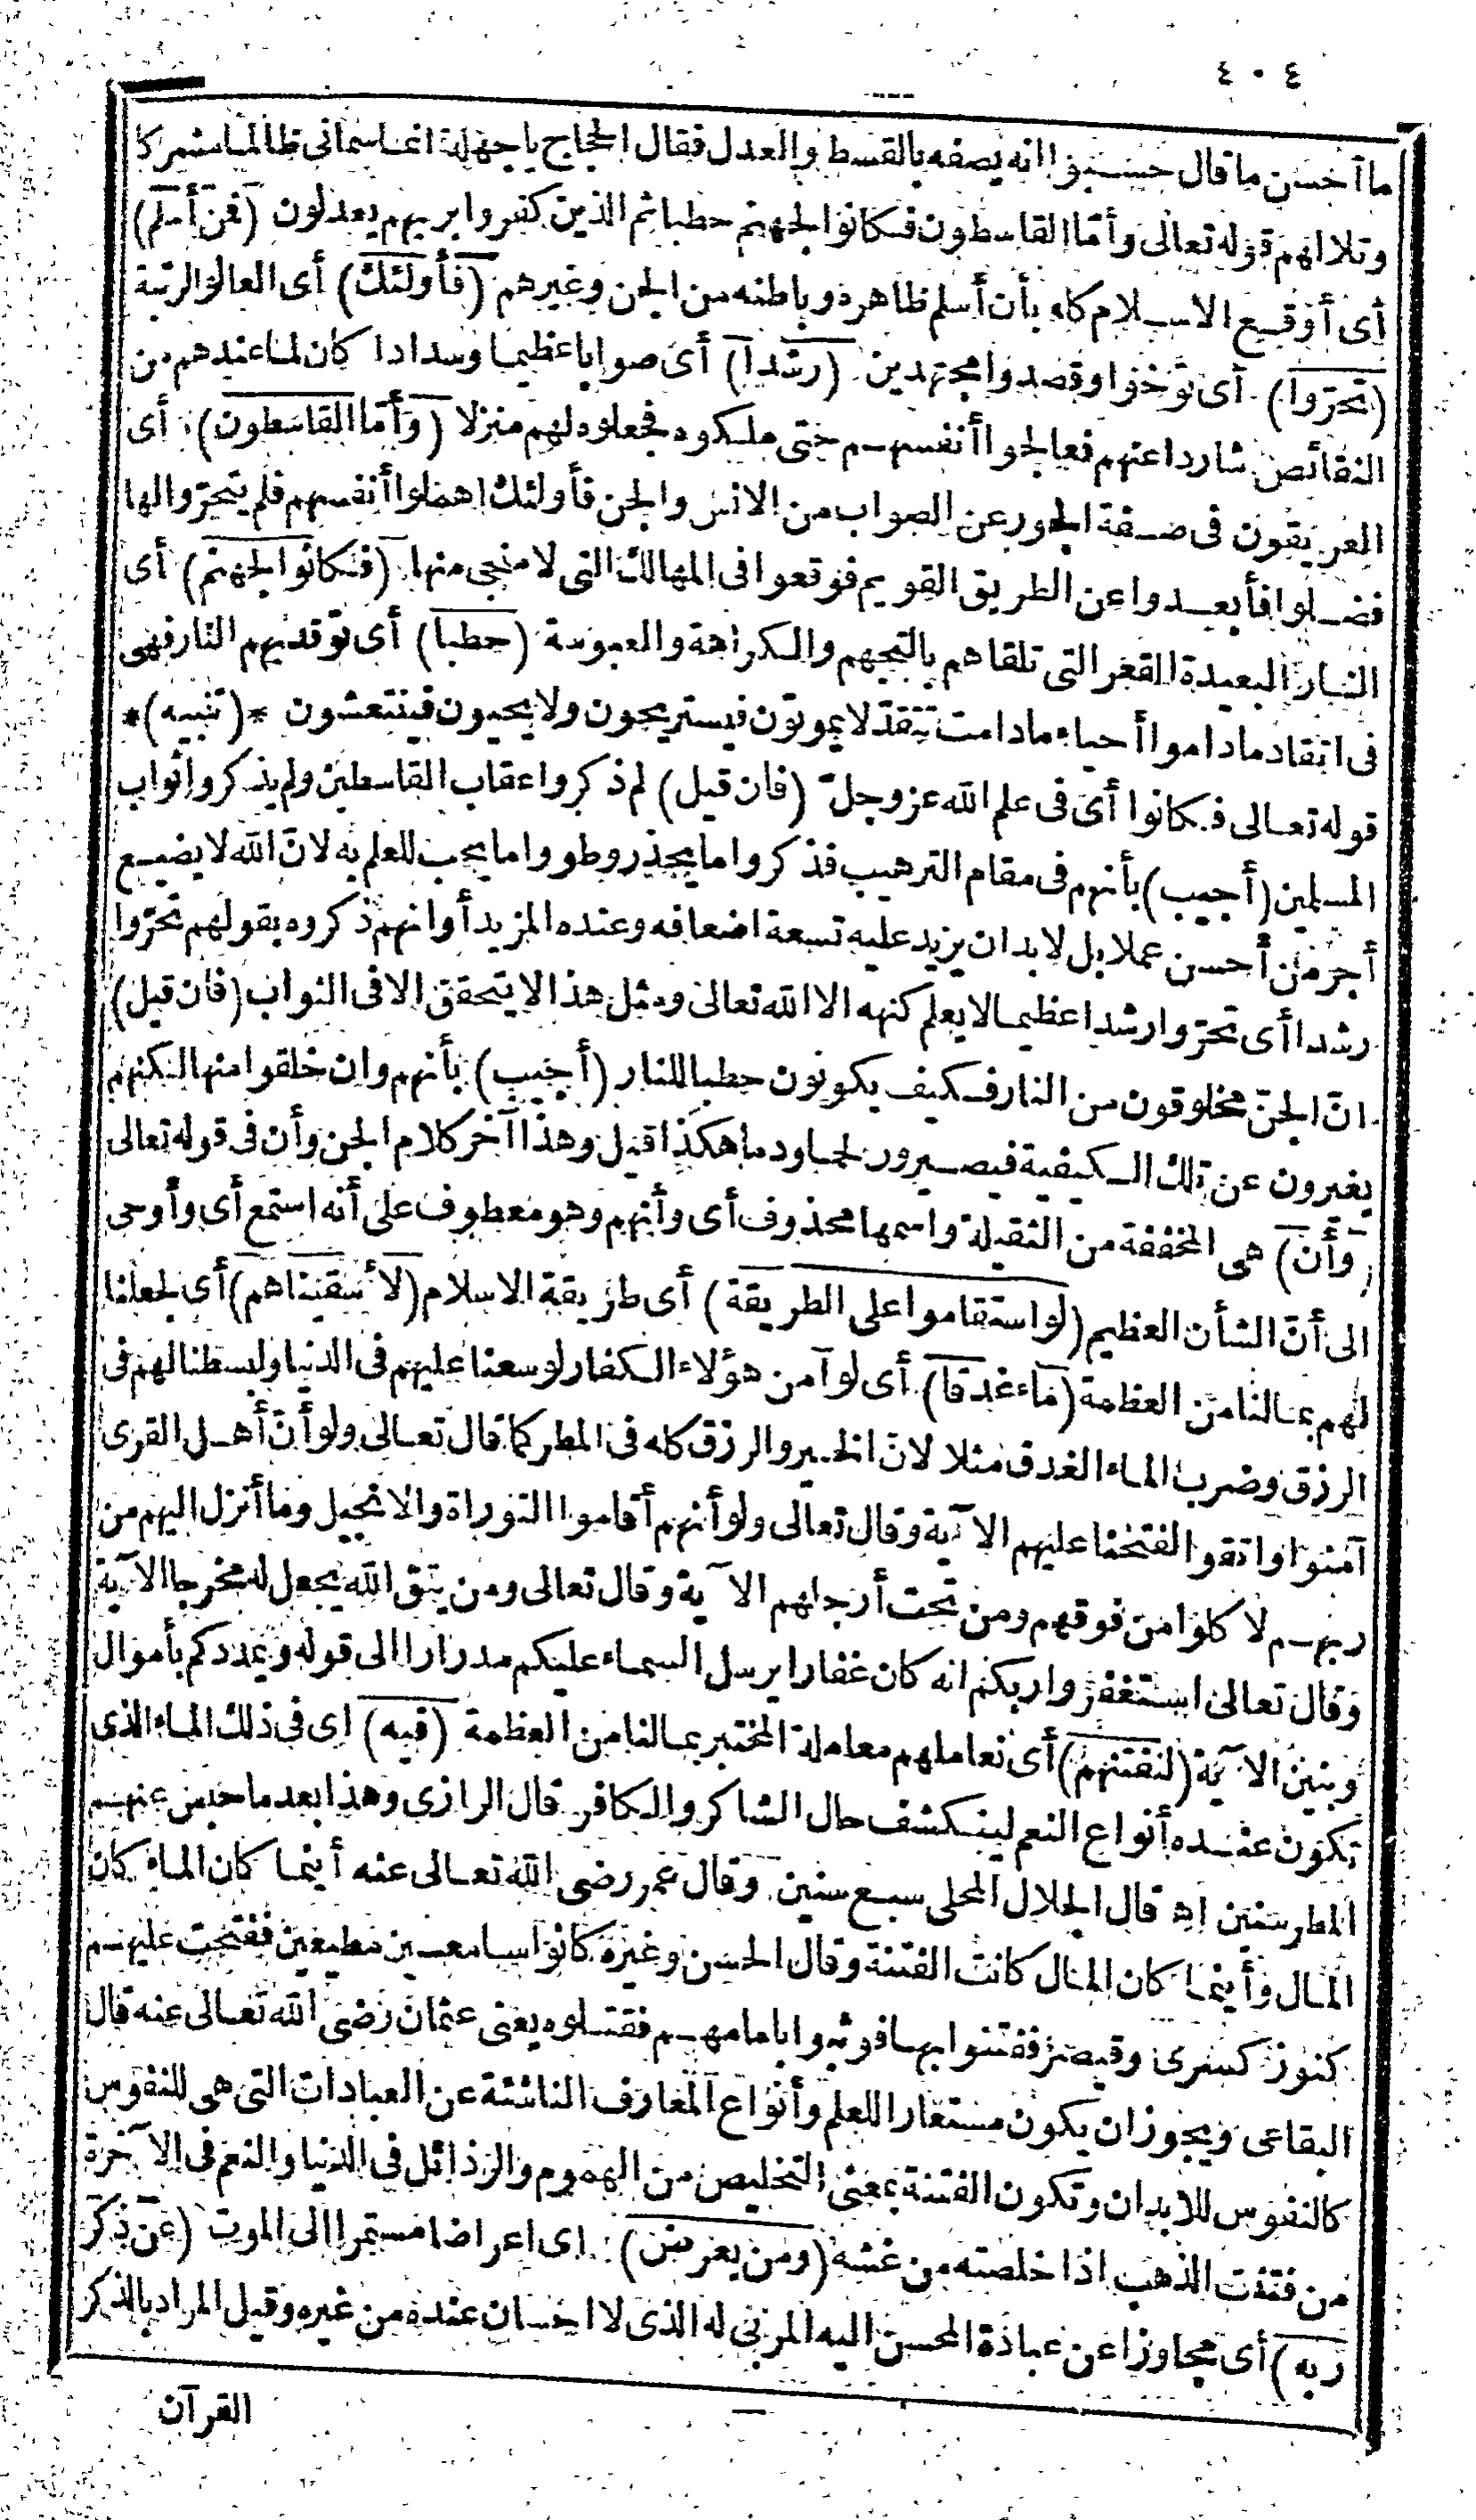 ٤٠٤
ما أحسن ما قال حسبوا انه يصفه بالقسط والعدل فقال الحجاج يا جهلة انما سمانى ظالما مشركا
وتلا لهم قوله تعالى وأمّا القاسطون فكانوا لجهنم حطبا ثم الذين كفروا بربهم يعدلون (فمن أسلم)
أى أوقع الاسلام كله بأن أسلم ظاهره وباطنه من الجن وغيرهم (فأولئك) أى العالو الرتبة
(تحرّوا) أى توخوا وقصدوا مجتهدين (رشدا) أى صوابا عظيما وسدادا كان لما عندهم من
النقائص شاردا عنهم فعالجوا أنفسهم حتى ملكوه فجعلوه لهم منزلا (وأمّا القاسطون) أى
العريقون فى صفة الجور عن الصواب من الانس والجن فأولئك اهملوا أنفسهم فلم يتحرّوا لها
فضلوا فأبعدوا عن الطريق القويم فوقعوا فى المهالك التى لا منجى منها (فكانوا لجهنم) أى
النار البعيدة القعر التى تلقاهم بالتجهم والكراهة والعبوسة (حطبا) أى توقد بهم النار فهى
فى اتقاد ما داموا أحياء ما دامت تتقد لا يموتون فيستريحون ولا يحيون فينتعشون *(تنبيه)*
قوله تعالى فكانوا أى فى علم الله عز وجل (فان قيل) لم ذكروا عقاب القاسطين ولم يذكروا ثواب
المسلمين (أجيب) بأنهم فى مقام الترهيب فذكروا ما يحذر وطووا ما يجب للعلم به لانّ الله لا يضيع
أجر من أحسن عملا بل لا بد ان يزيد عليه تسعة اضعافه وعنده المزيد أو انهم ذكروه بقولهم تحرّوا
رشدا أى تحرّوا رشدا عظيما لا يعلم كنهه الا الله تعالى ومثل هذا لا يتحقق الا فى الثواب (فان قيل)
انّ الجنّ مخلوقون من النار فكيف يكونون حطبا للنار (أجيب) بأنهم وان خلقوا منها لكنهم
يغيرون عن تلك الكيفية فيصيرون لحما ودما هكذا قيل وهذا آخر كلام الجن وأن فى قوله تعالى
(وأن) هى المخففة من الثقيلة واسمها محذوف أى وأنهم وهو معطوف على أنه استمع أى وأوحى
الى أنّ الشأن العظيم (لو استقاموا على الطريقة) أى طريقة الاسلام (لأسقيناهم) أى لجعلنا
لهم بمالنا من العظمة (ماء غدقا) أى لو آمن هؤلاء الكفار لوسعنا عليهم فى الدنيا ولبسطنا لهم فى
الرزق وضرب الماء الغدق مثلا لانّ الخير والرزق كله فى المطر كما قال تعالى ولو أنّ أهل القرى
آمنوا واتقوا لفتحنا عليهم الآية وقال تعالى ولو أنهم أقاموا التوراة والانجيل وما أنزل اليهم من
ربهم لأكلوا من فوقهم ومن تحت أرجلهم الآية وقال تعالى ومن يتق الله يجعل له مخرجا الآية
وقال تعالى استغفروا ربكم انه كان غفارا يرسل السماء عليكم مدرارا الى قوله ويمددكم بأموال
وبنين الآية (لنفتنهم) أى نعاملهم معاملة المختبر بمالنا من العظمة (فيه) اى فى ذلك الماء الذى
تكون عنده أنواع النعم لينكشف حال الشاكر والكافر قال الرازى وهذا بعد ما حبس عنهم
المطر سنين اه قال الجلال المحلى سبع سنين وقال عمر رضى الله تعالى عنه أينما كان الماء كان
المال وأينما كان المال كانت الفتنة وقال الحسن وغيره كانوا سامعين مطيعين ففتحت عليهم
كنوز كسرى وقيصر ففتنوا بها فوثبوا بامامهم فقتلوه يعنى عثمان رضى الله تعالى عنه قال
البقاعى ويجوز ان يكون مستعارا للعلم وأنواع المعارف الناشئة عن العبادات التى هى للنفوس
كالنفوس للابدان وتكون الفتنة بمعنى التخليص من الهموم والرذائل فى الدنيا والنعم فى الآخرة
من فتنت الذهب اذا خلصته من غشه (ومن يعرض) اى اعراضا مستمرا الى الموت (عن ذكر
ربه) أى مجاوزا عن عبادة المحسن اليه المربى له الذى لا احسان عنده من غيره وقيل المراد بالذكر
القرآن